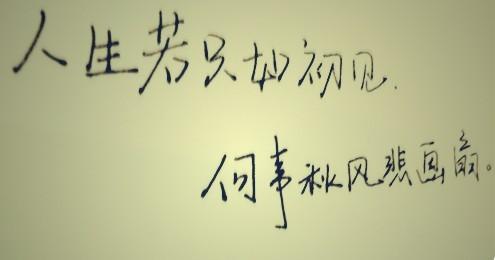 人生若只如初见.
何事秋风悲画扇。